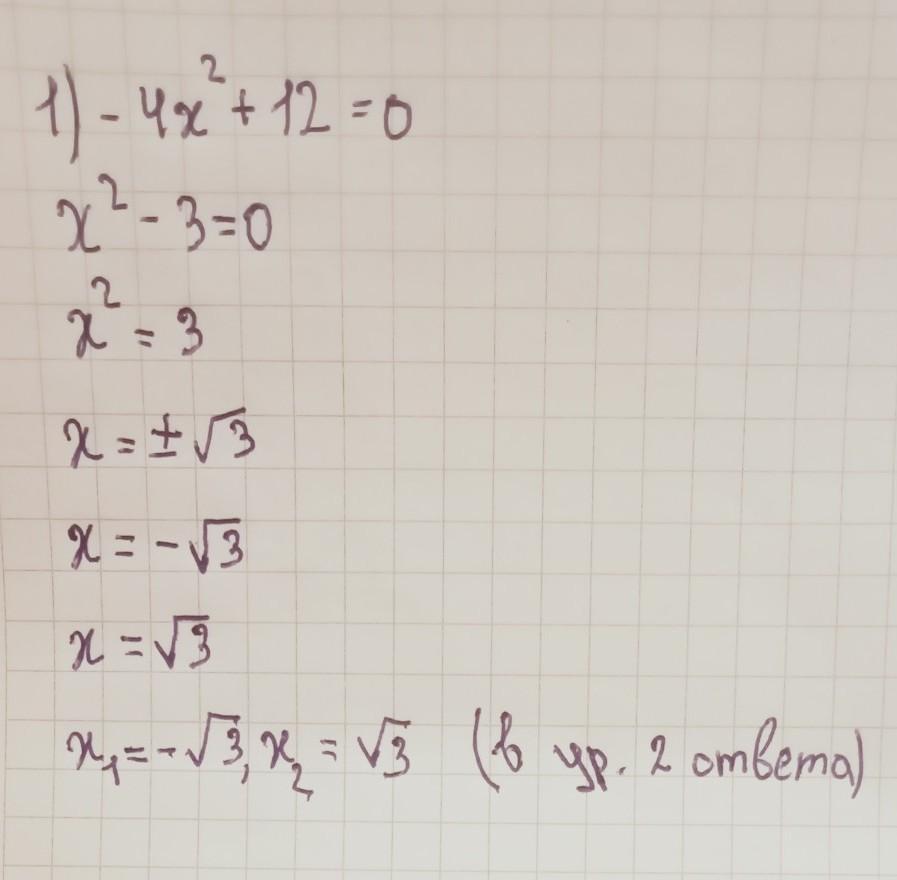 1) - 4x² + 12 = 0
x² - 3 = 0
x² = 3
x = ± √3
x = - √3
x = √3
x₁ = - √3, x₂ = √3 (в ур. 2 ответа)